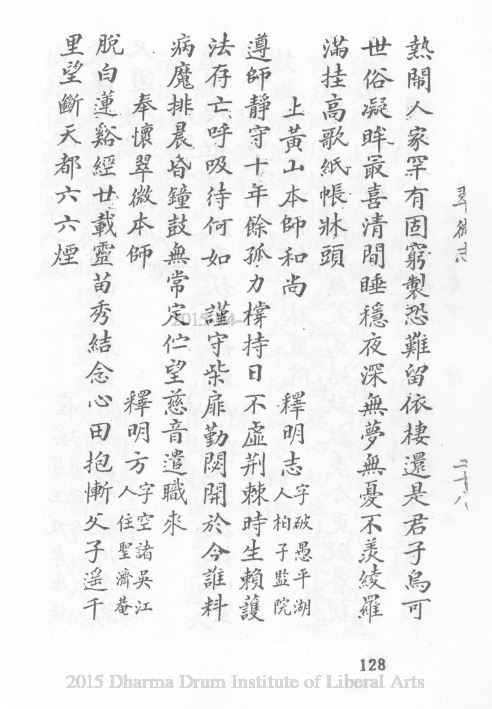 翠微志
二十八
熱鬧人家罕有固窮製恐難留依棲還是君子烏可
世俗凝眸最喜清間睡穩夜深無夢無憂不羨綾羅
滿挂高歌紙帳牀頭
上黃山本師和尚 釋明志字破愚平湖人柏子監院
遵師靜守十年餘孤力撐持日不虛荆棘時生賴護
法存亡呼吸待何如 謹守柴扉勤閟開於今誰料
病魔排晨昏鐘鼓無常定伫望慈音遣職來
奉懷翠微本師 釋明方字空諸吳江人住聖濟菴
脫白蓮谿經廿載靈苗秀結念心田抱慚父子遥千
里望斷天都六六煙
2015
128
2015 Dharma Drum Institute of Liberal Arts